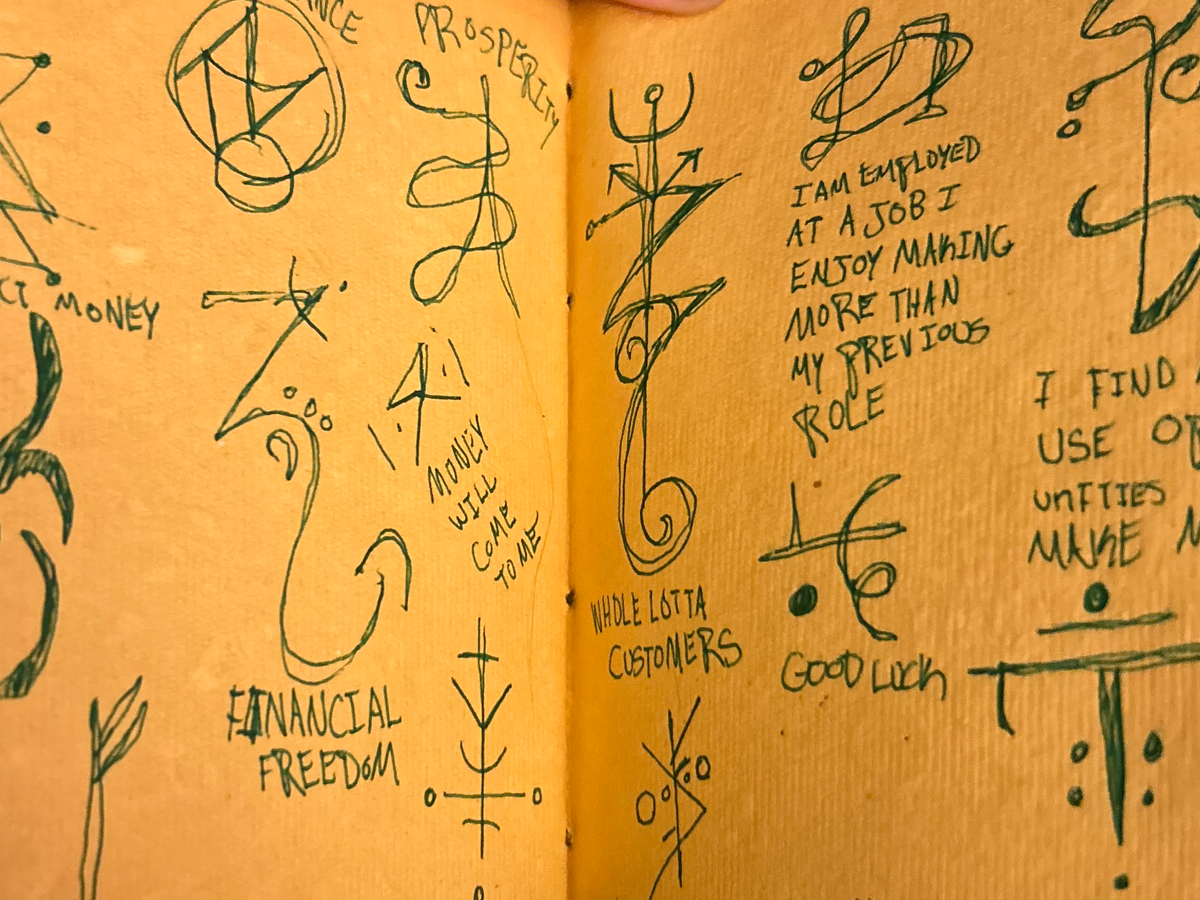 PROSPERITY
MONEY
FINANCIAL
FREEDOM
MONEY
WILL
COME
TO ME
WHOLE LOTTA
CUSTOMERS
I AM EMPLOYED
AT A JOB I
ENJOY MAKING
MORE THAN
MY PREVIOUS
ROLE
GOOD LUCK
I FIND
USE
UNFTIES
MAKE